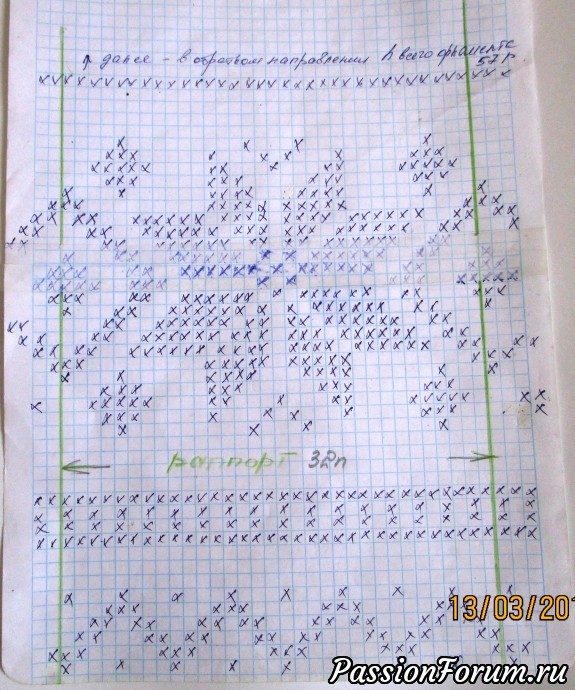 ↑ далее - в обратном направлении А всего орнамента
57 р
раппорт 32п
13/03/201
PassionForum.ru